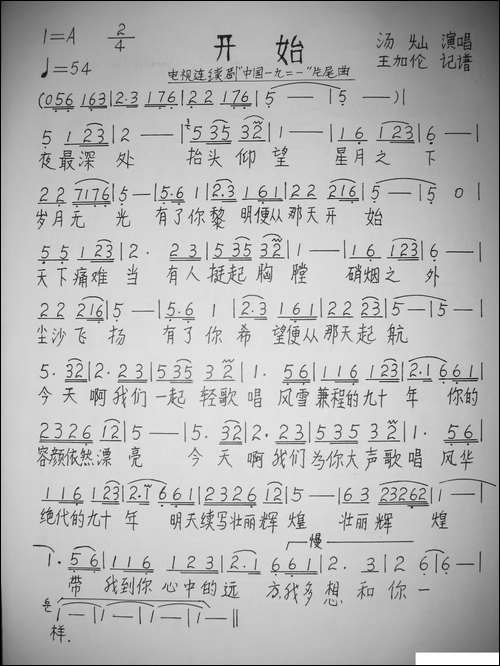 1=A 2/4
开始
汤灿 演唱
♩=54
王加伦 记谱
电视连续剧"中国一九二一"片尾曲
(056 163|2·3 176|2 2 176|5 —|5 —)|
5 1 23|2 —|5 35 32|1 —|1 6 123|6 —|
夜最深处 抬头仰望 星月之下
2 2 7176|5 —|5·6 1|2·3 161|2 2 216|5 —|5 0|
岁月元光 有了你黎明便从那天开始
5 5 123|2· 23|5 35 32|1 —|1 6 123|6 —|
天下痛难当 有人挺起胸膛 硝烟之外
2 2 216|5 —|5·6 1|2·3 161|2 2 23|5 —|5 —|
尘沙飞扬 有了你希望便从那天起航
5· 32|2· 23|535 32|1· 56|116 123|2·1 661|
今天啊我们一起轻歌唱 风雪兼程的九十年 你的
2326 12|5 —|5· 32|2· 23|535 32|1· 56|
容颜依然漂亮 今天啊我们为你大声歌唱 风华
116 123|2·1 661|2326 12|5 —|63 23262|1 —|
绝代的九十年 明天续写壮丽辉煌 壮丽辉煌
慢
1· 56|116 123|2·1 661|2· 3|2 66|6 —|
带我到你心中的远方,我多想和你一
1 —|1 —|1 —|1 —‖
样.